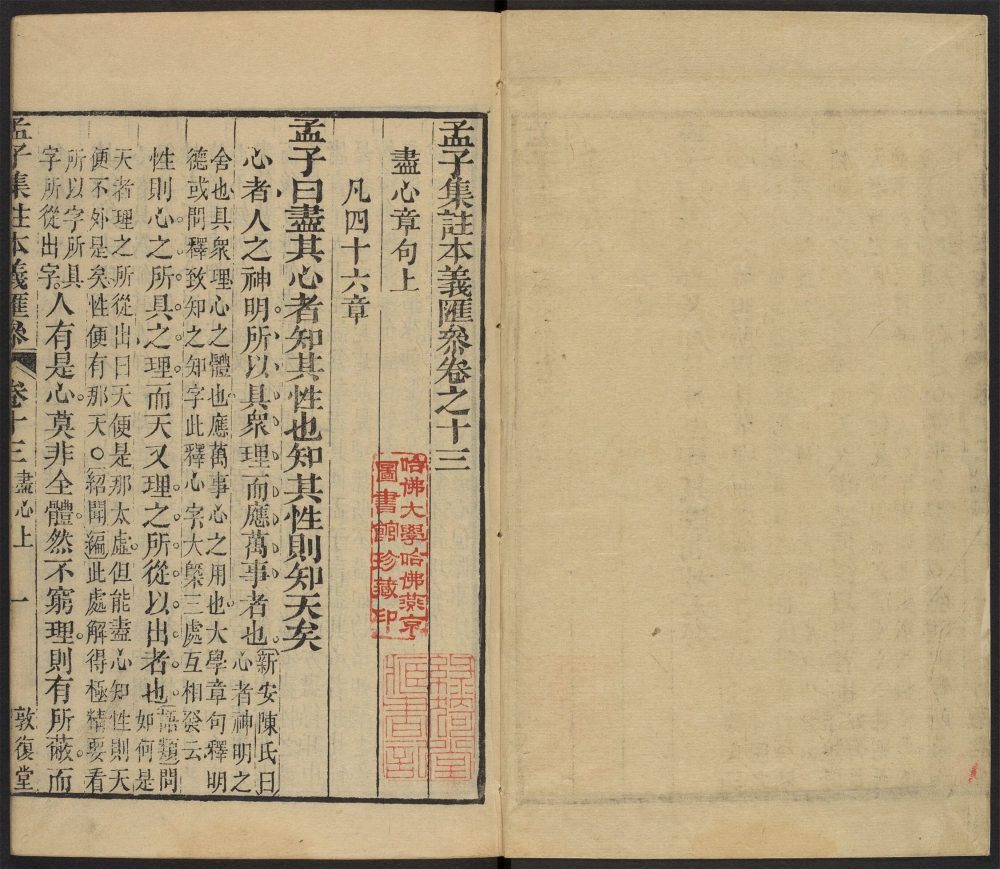 孟子集註本義匯叅卷之十三
盡心章句上
凡四十六章
孟子曰盡其心者知其性也知其性則知天矣
心者人之神明所以具衆理而應萬事者也
新安陳氏曰
心者神明之
舍也具衆理心之體也應萬事心之用也大學章句釋明
德或問釋致知之知字此釋心字大槩三處互相發云
性則心之所具之理而天又理之所從以出者也
語類問
如何是
天者理之所從出曰天便是那太虛但能盡心知性則天
便不外是矣性便有那天○紹聞編此處解得極精要看
所以字所具
字所從出字
人有是心莫非全體然不窮理則有所蔽而
孟子集註本義匯叅 卷十三 盡心上 一 敦復堂
哈佛大學哈佛燕京
圖書館珍藏印